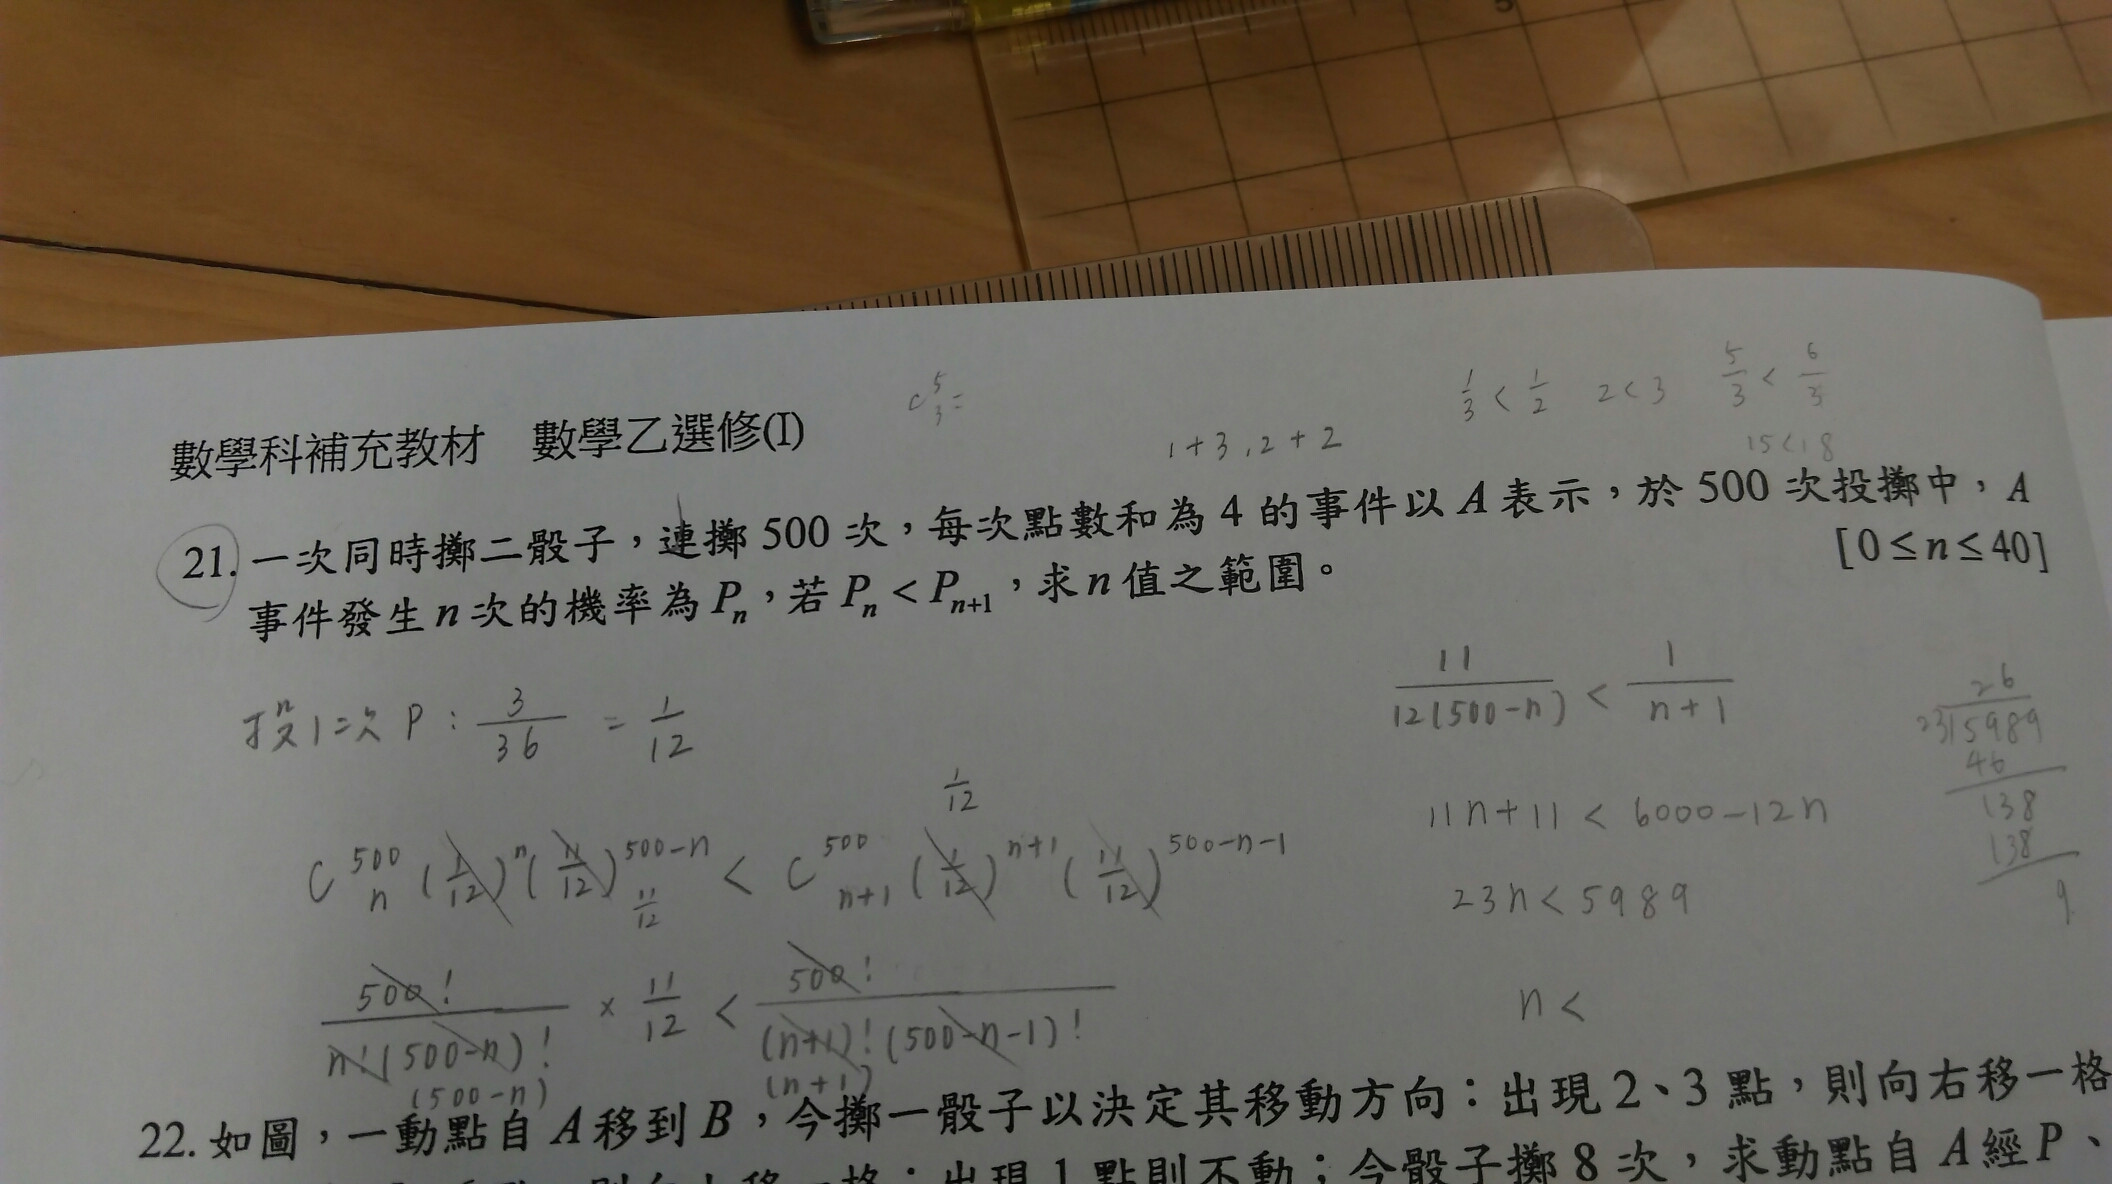 5
C⁵₃=
1/3 < 1/2 2<3 5/3 < 6/3
15<18
數學科補充教材 數學乙選修(I)
1+3,2+2
21. 一次同時擲二骰子，連擲 500 次，每次點數和為 4 的事件以 A 表示，於 500 次投擲中，A
事件發生 n 次的機率為 Pₙ，若 Pₙ < Pₙ₊₁，求 n 值之範圍。
[0≤n≤40]
投1次 P : 3/36 = 1/12
1/12
C⁵⁰⁰ₙ (1/12)ⁿ (11/12)⁵⁰⁰⁻ⁿ < C⁵⁰⁰ₙ₊₁ (1/12)ⁿ⁺¹ (11/12)⁵⁰⁰⁻ⁿ⁻¹
11/12
500!/n!(500-n)! × 11/12 < 500!/(n+1)!(500-n-1)!
(500-n) (n+1)
11/12(500-n) < 1/n+1
11n+11 < 6000-12n
23n < 5989
n <
26
23)5989
46
138
138
9
22. 如圖，一動點自 A 移到 B，今擲一骰子以決定其移動方向：出現 2、3 點，則向右移一格
出現 1 點則不動；今骰子擲 8 次，求動點自 A 經 P、